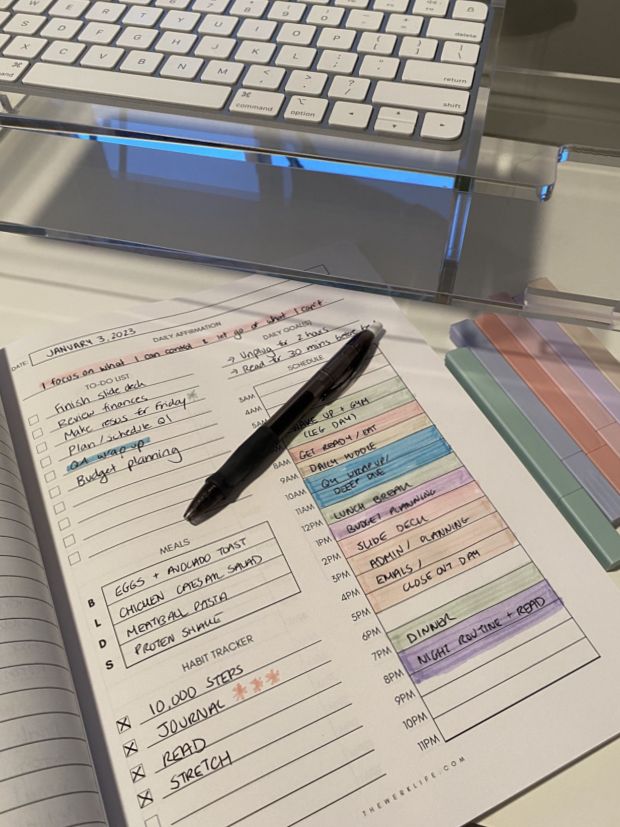 W E R T Y U I O P
delete
S D F G H J K L
return
X C V B N M < , > . ? /
shift
command
⌘ command
⌥ option
DATE: JANUARY 3, 2023
DAILY AFFIRMATION
I focus on what I can control & let go of what I can't
TO-DO LIST
Finish slide deck
Review finances
Make resos for Friday*
Plan / schedule Q1
Q4 wrap up
Budget planning
MEALS
B EGGS + AVOCADO TOAST
L CHICKEN CAESAR SALAD
D MEATBALL PASTA
S PROTEIN SHAKE
HABIT TRACKER
10,000 STEPS
JOURNAL
READ
STRETCH
DAILY GOALS
→ Unplug for 2 hours
→ Read for 30 mins before
SCHEDULE
3AM
4AM
5AM
WAKE UP + GYM
(LEG DAY)
GET READY / EAT
8AM DAILY HUDDLE
9AM Q4 WRAP UP/
10AM DECK DUE
11AM LUNCH BREAK
12PM BUDGET PLANNING
1PM SLIDE DECK
2PM ADMIN / PLANNING
3PM EMAILS /
4PM CLOSE OUT DAY
5PM
6PM DINNER
7PM NIGHT ROUTINE + READ
8PM
9PM
10PM
11PM
THEWERKLIFE.COM